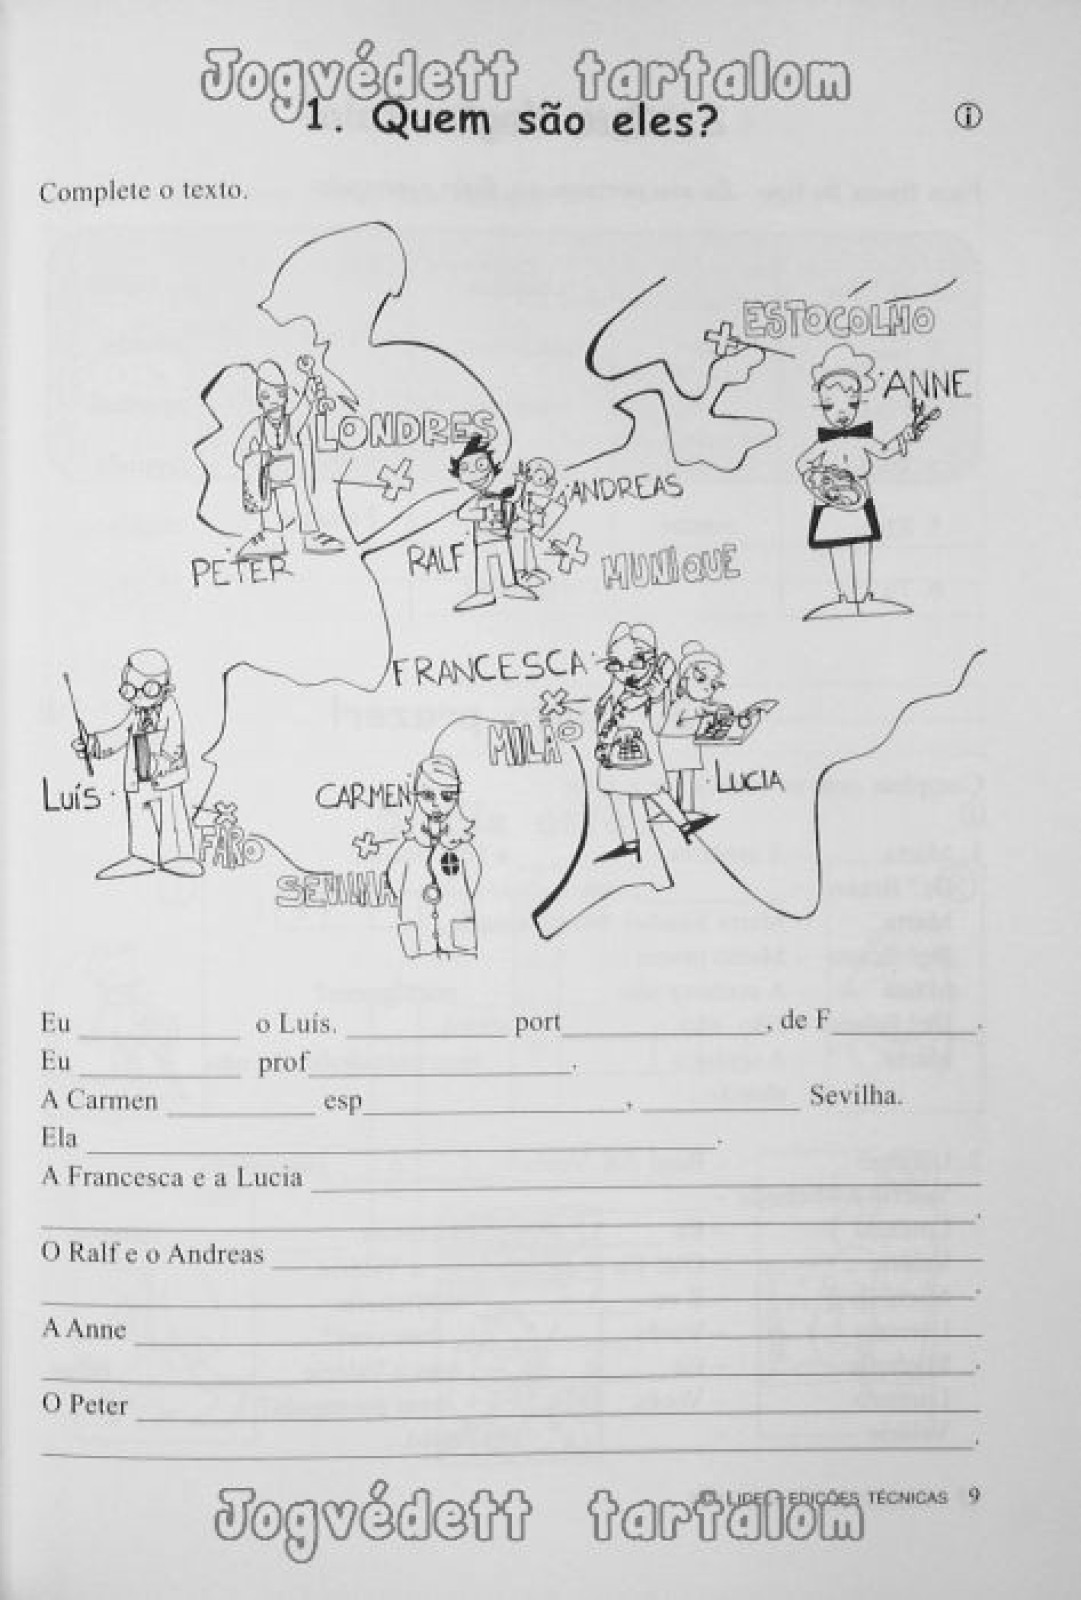 Jogvédett tartalom
1. Quem são eles?
i
Complete o texto.
ESTOCOLMO
ANNE
LONDRES
ANDREAS
PETER
RALF
MUNIQUE
FRANCESCA
MILÃO
LUÍS
CARMEN
LUCIA
FARO
SEVILHA
Eu ____________ o Luís. ____________ port_______________, de F___________.
Eu ____________ prof____________________.
A Carmen ___________ esp____________________, ____________ Sevilha.
Ela ________________________________________________.
A Francesca e a Lucia ____________________________________________________
______________________________________________________________________.
O Ralf e o Andreas ______________________________________________________
______________________________________________________________________.
A Anne ________________________________________________________________
______________________________________________________________________.
O Peter ________________________________________________________________
______________________________________________________________________.
© LIDEL – EDIÇÕES TÉCNICAS 9
Jogvédett tartalom